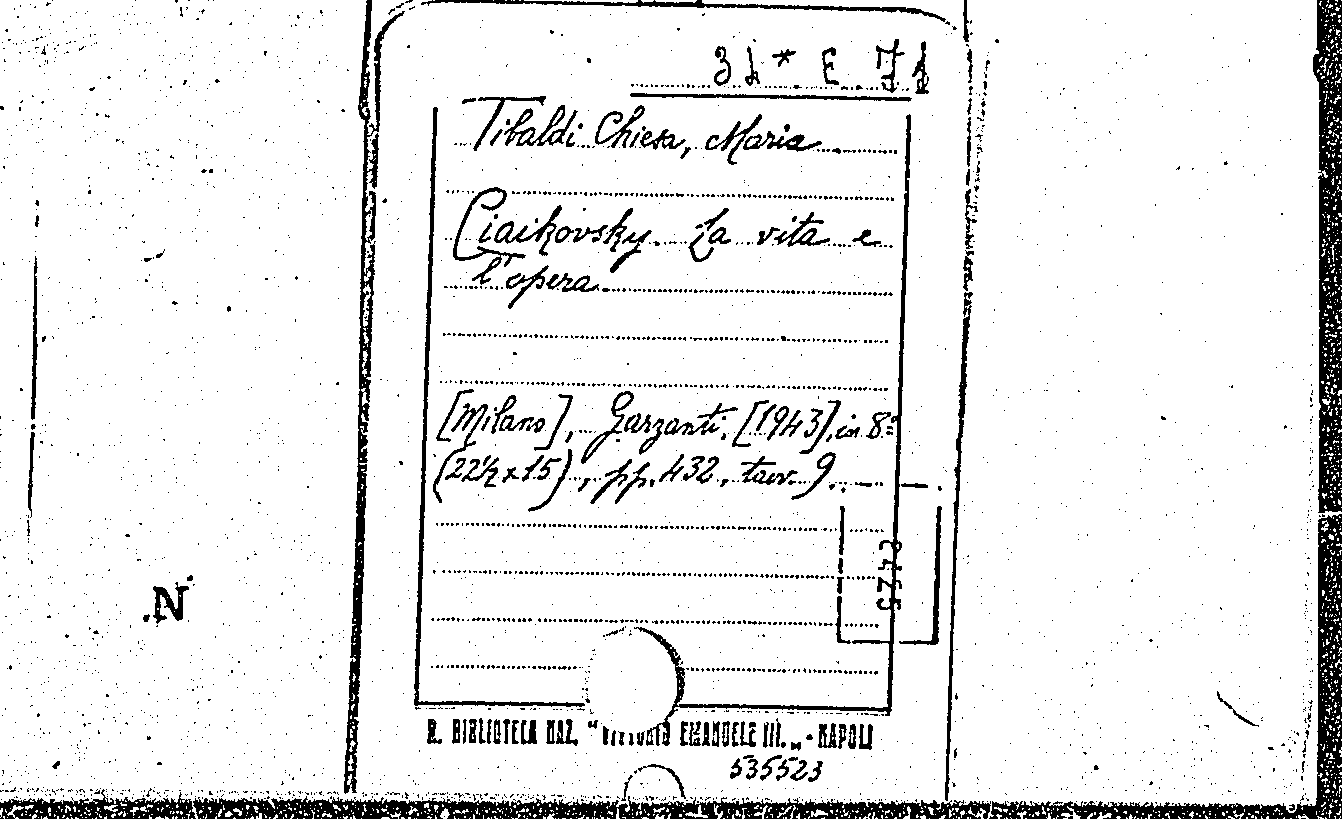 31 * E 71
Tibaldi Chiesa, Maria
Ciaikovsky. La vita e
l'opera.
[Milano], Garzanti, [1943], in 8º
(22½ x 15), pp. 432, tav. 9.
2425
N
R. BIBLIOTECA NAZ. "VITTORIO EMANUELE III„ - NAPOLI
535523